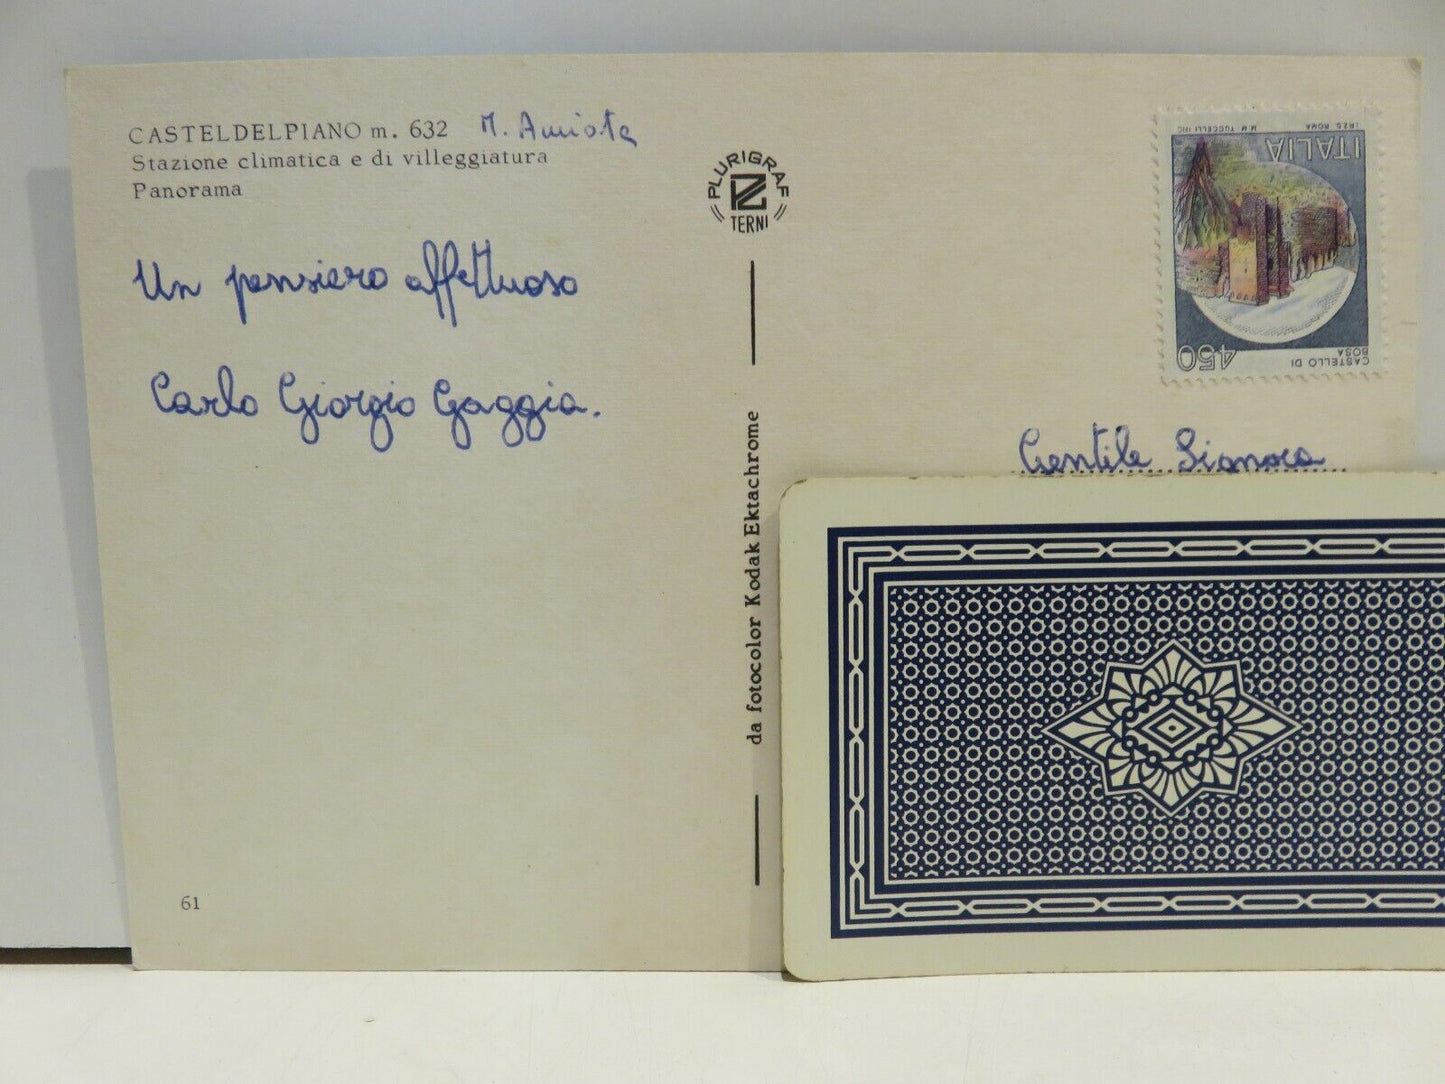 CASTELDELPIANO m. 632 M. Amiata
Stazione climatica e di villeggiatura
Panorama
Un pensiero affettuoso
Carlo Giorgio Gaggia.
61
PLURIGRAF
TERNI
da fotocolor Kodak Ektachrome
I.P.Z.S. ROMA M.M. TUCCELLI INC.
ITALIA
450
CASTELLO DI
BOSA
Gentile Signora